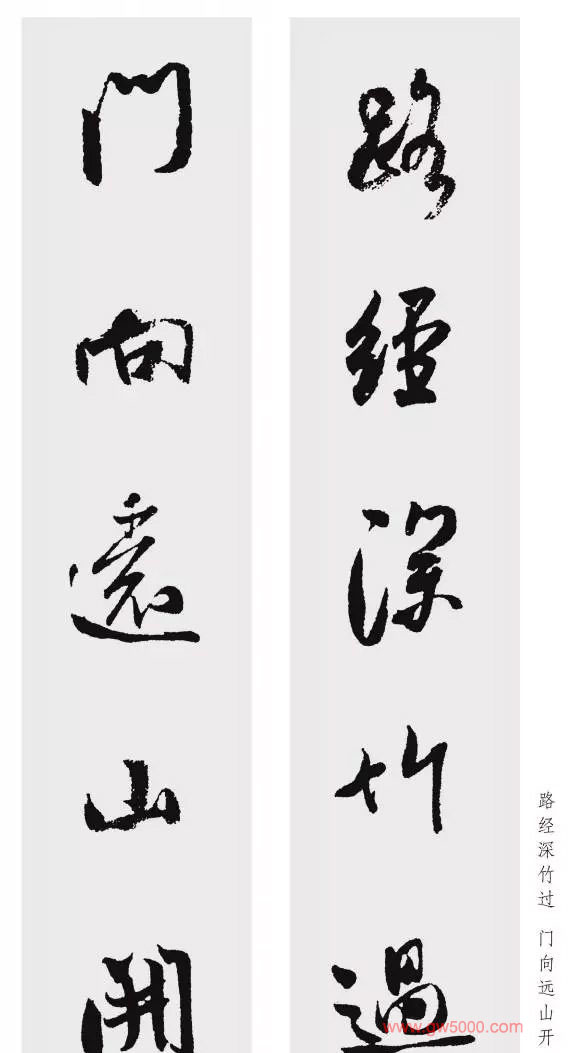 路經深竹過
門向遠山開
路经深竹过 门向远山开
www.gw5000.com